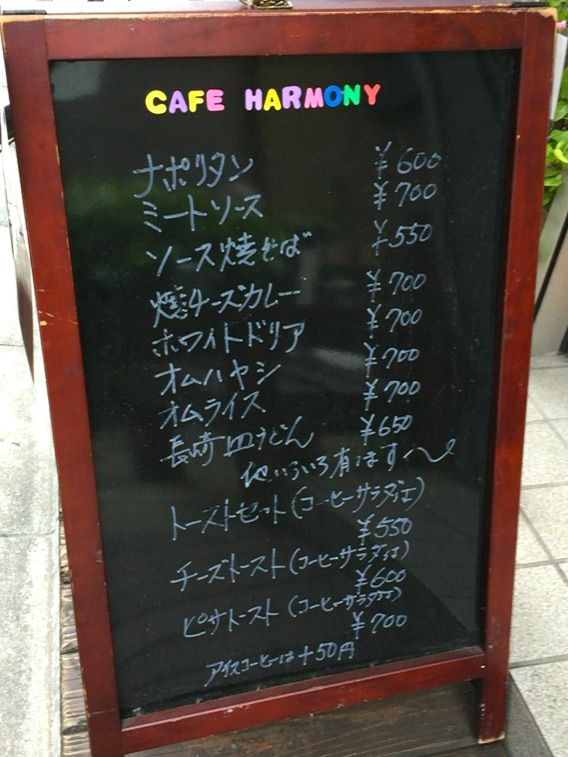 CAFE HARMONY
ナポリタン ¥600
ミートソース ¥700
ソース焼そば ¥550
焼チーズカレー ¥700
ホワイトドリア ¥700
オムハヤシ ¥700
オムライス ¥700
長崎皿うどん ¥650
他いろいろ有ります〜
トーストセット(コーヒーサラダ付)
¥550
チーズトースト(コーヒーサラダ付)
¥600
ピザトースト(コーヒーサラダ付)
¥700
アイスコーヒーは+50円